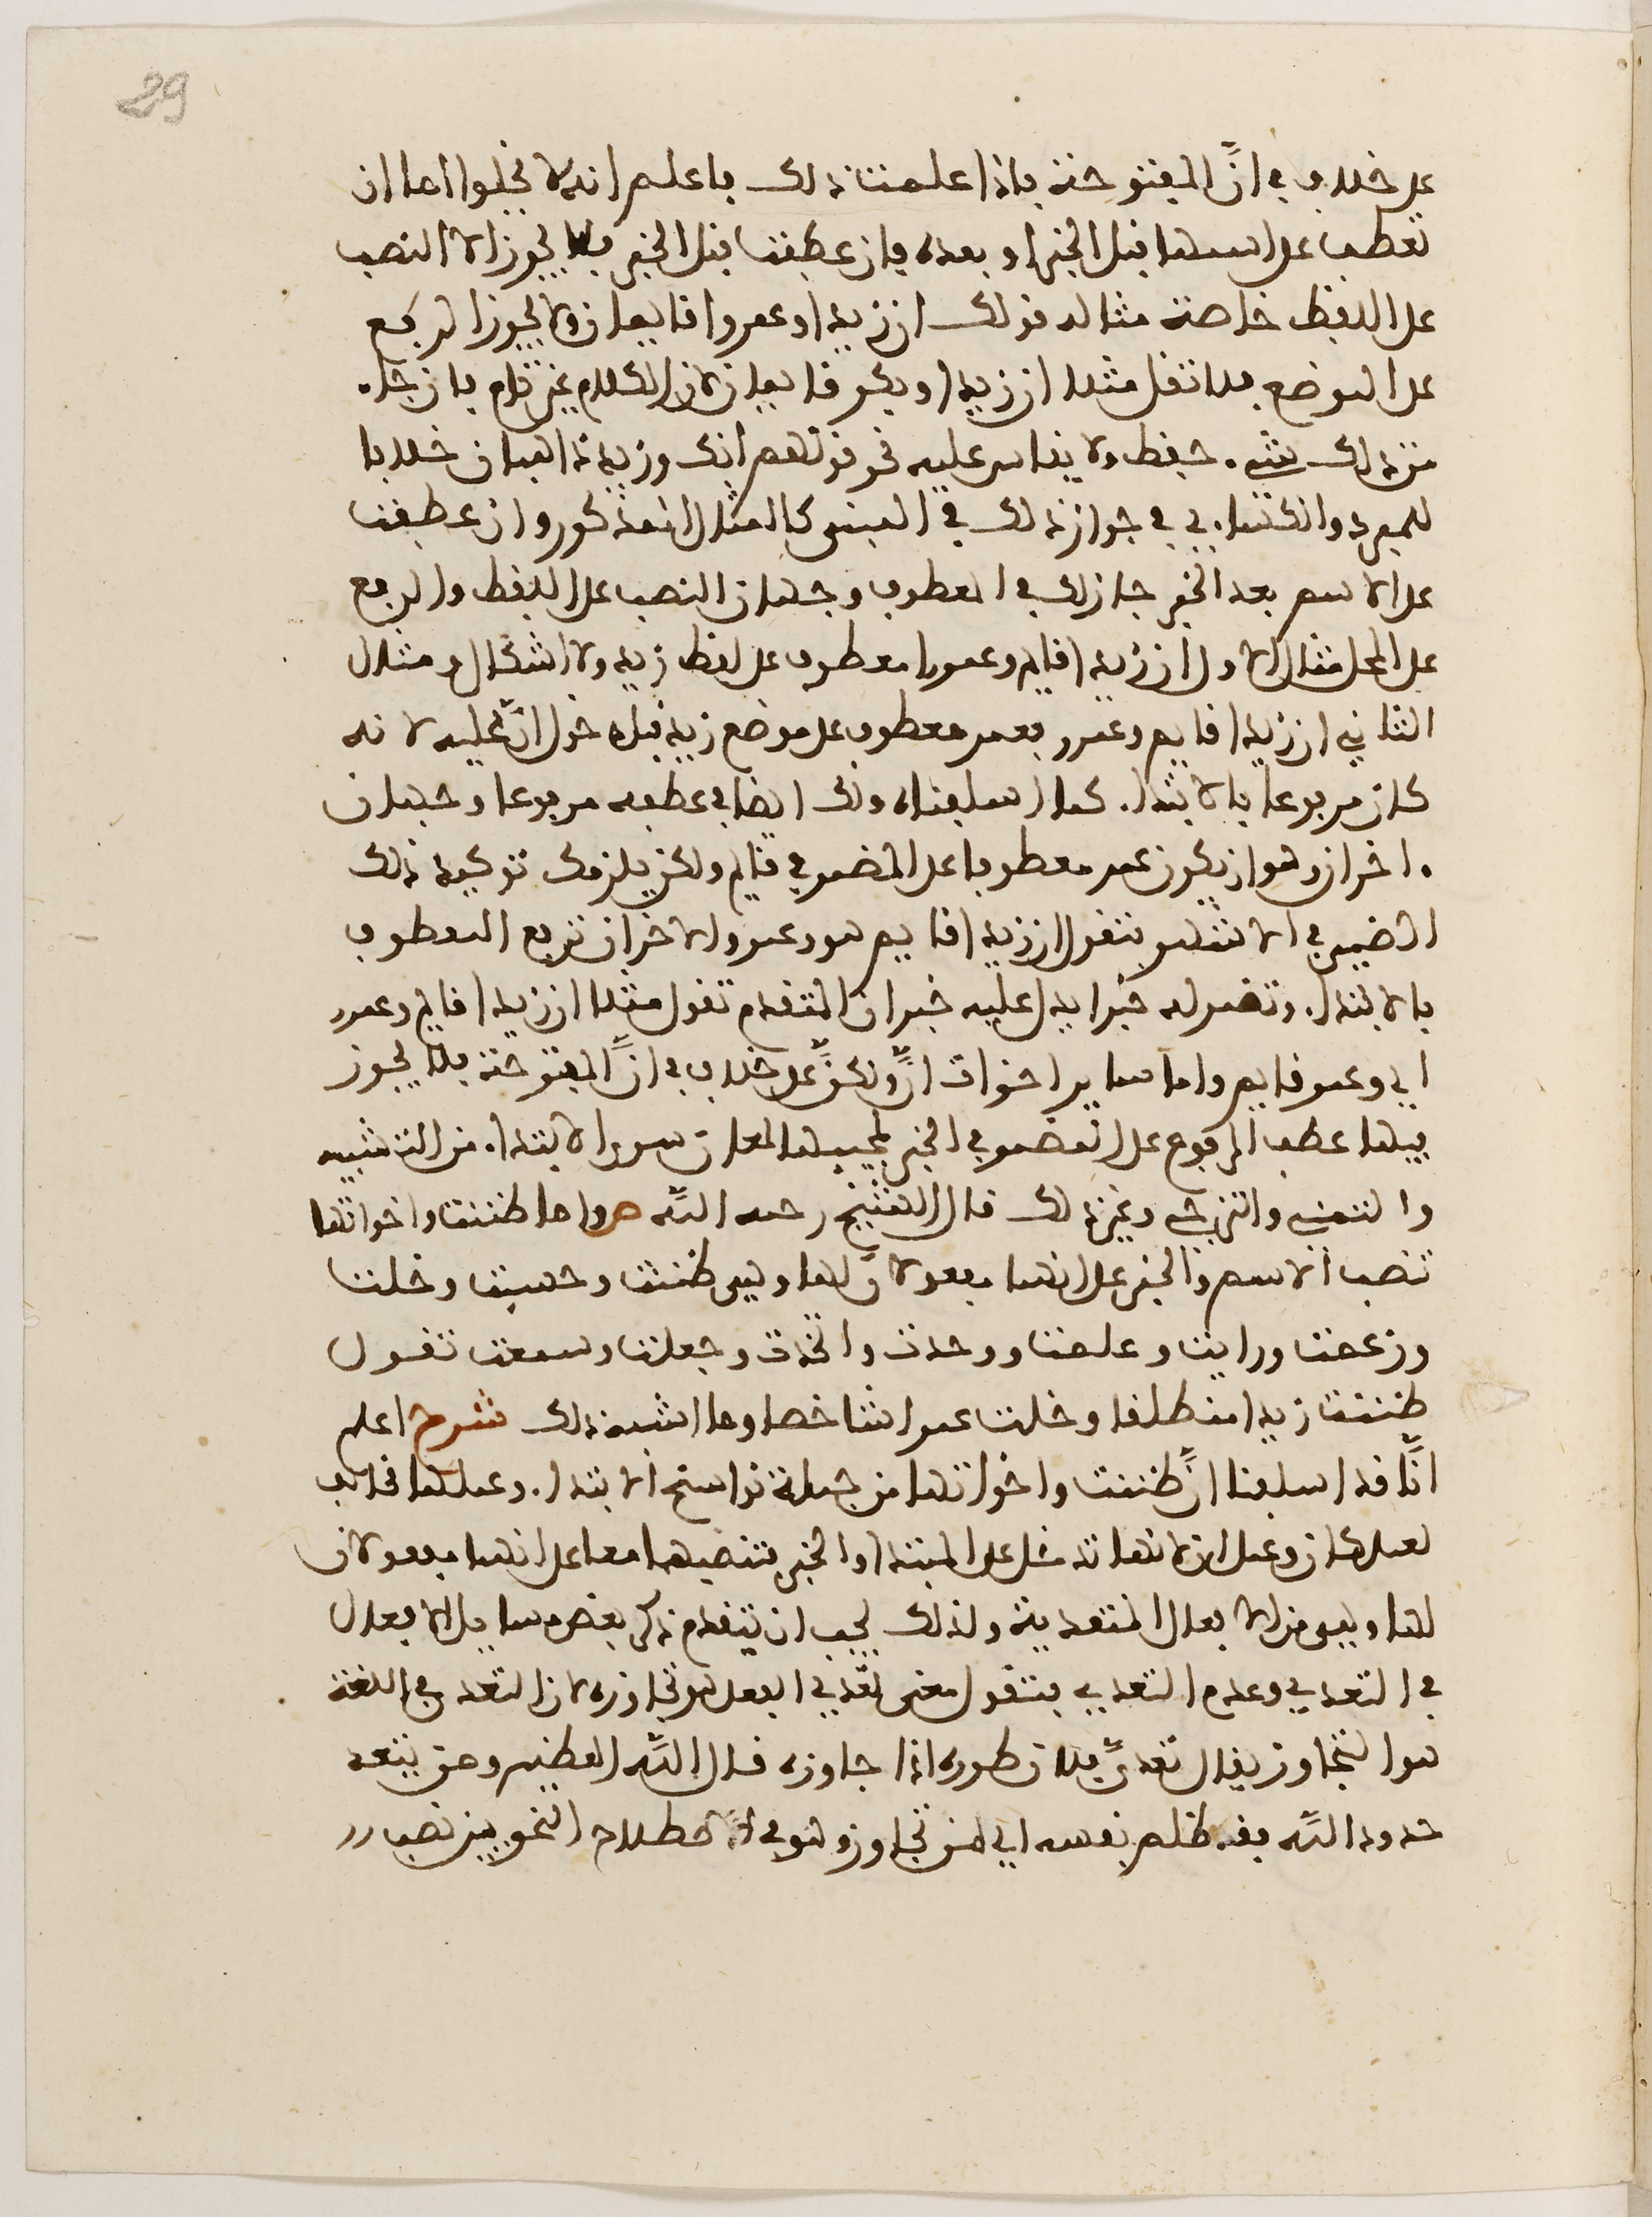 29
على خلاف في انَّ المفتوحة فاذا علمت ذلك فاعلم انه لا يخلوا اما ان
تعطف على اسمها قبل الخبر او بعده فان عطفت قبل الخبر فلا يجوز الا النصب
على اللفظ خاصة مثاله قولك ان زيدا وعمروا قايمان ولا يجوز الرفع
على الموضع فلا تقل مثلا ان زيدا وبكر قايمان لان الكلام غير تام فان جاء
من ذلك شيء حفظ ولا يقاس عليه نحو قولهم انك وزيد ذاهبان خلافا
للمبرد والكساءي في جواز ذلك في المبني كالمثال المذكور وان عطفت
على الاسم بعد الخبر جاز لك في المعطوف وجهان النصب على اللفظ والرفع
على المحل مثال الاول ان زيدا قايم وعمروا معطوف على لفظ زيد ولا اشكال ومثال
الثاني ان زيدا قايم وعمرو فعمر معطوف على موضع زيد قبل دخول انَّ عليه لانه
كان مرفوعا بالابتداء كما اسلفناه ولك ايضا في عطفه مرفوعا وجهان
ءاخران وهو ان يكون عمر معطوفا على المضمر في قايم ولكن يلزمك توكيد ذلك
الضمير في الاشهر فتقول ان زيدا قايم هو وعمرو الاخر ان ترفع المعطوف
بالابتداء وتضمر له خبرا يدل عليه خبر ان المتقدم تقول مثلا ان زيدا قايم وعمرو
اي وعمر قايم واما ساير اخوات انَّ ولكنَّ على خلاف في انَّ المفتوحة فلا يجوز
فيها عطف المرفوع على المضمر في الخبر لمجيبها لمعان سوى الابتداء من التشبيه
والتمني والترجي وغير ذلك قال الشيخ رحمه اللّه ص واما ظننت واخواتها
تنصب الاسم والخبر على انهما مفعولان لها وهي ظننت وحسبت وخلت
وزعمت ورايت وعلمت ووجدت واتخذت وجعلت وسمعت تقول
ظننت زيدا منطلقا وخلت عمرا شاخصا وما اشبه ذلك شرح اعلم
انَّا قد اسلفنا انَّ ظننت واخواتها من جملة نواسخ الابتداء وعملها مخالف
لعمل كان وعمل ان لانها تدخل على المبتدا والخبر فتنصبهما معا على انهما مفعولان
لها وهي من الافعال المتعدية ولذلك يجب ان يتقدم ذكر بعض مسايل الافعال
في التعدي وعدم التعدي فتقول معنى تعدي الفعل هو تجاوزه لان التعدي في اللغة
هو التجاوز يقال تعدَّى فلان طوره اذا جاوزه قال اللّه العظيم ومن يتعد
حدود اللّه فقد ظلم نفسه اي من تجاوز وهو في الاصطلاح النحويين نصب